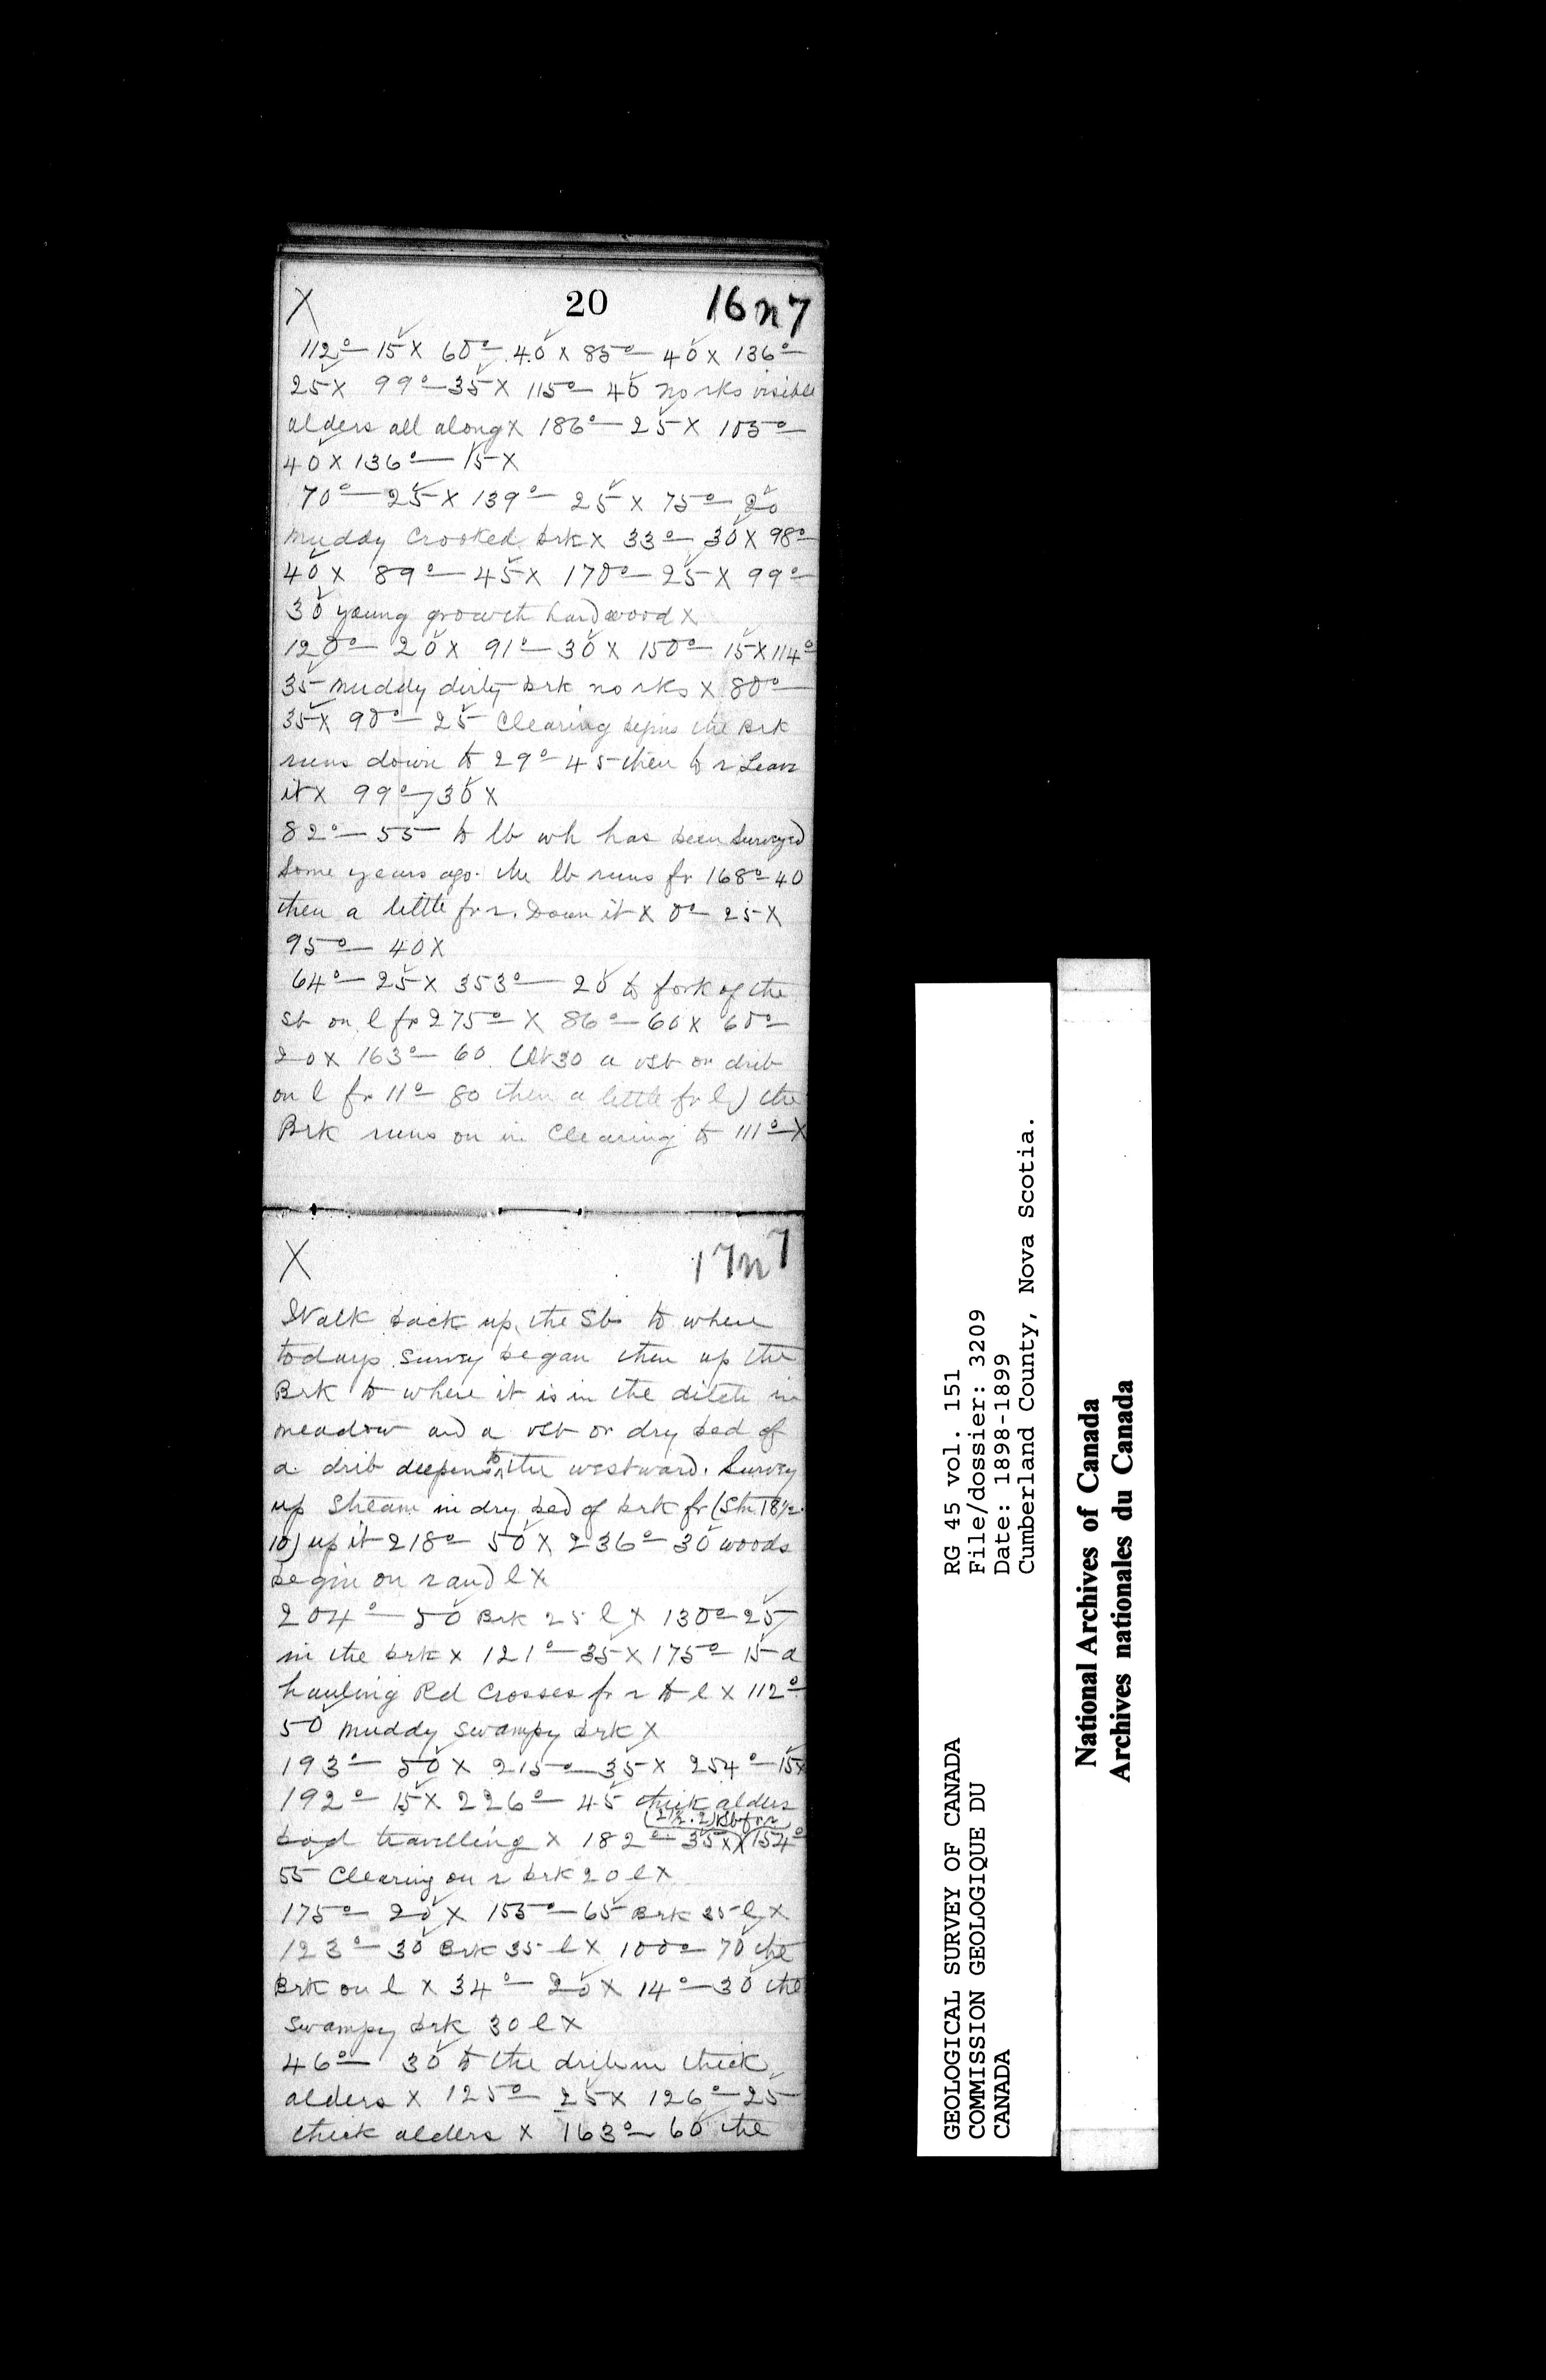 X 20 16n7
112°—15 X 60°—40 X 85°—40 X 136°—
25 X 99°—35 X 115°—40 no rks visible
alders all along X 186°—25 X 105°—
40 X 136°—15 X
70°—25 X 139°—25 X 75°—20
muddy crooked brk X 33°—30 X 98°—
40 X 89°—45 X 170°—25 X 99°—
30 young growth hardwood X
120°—20 X 91°—30 X 150°—15 X 114°
35 muddy dirty brk no rks X 80°—
35 X 90°—25 Clearing begins the Brk
runs down to 29°—45 then to r Leave
it X 99°—30 X
82°—55 to lb wh has been surveyed
some years ago. The lb runs fr 168°—40
then a little fr r. Down it X 0°—25 X
95°—40 X
64°—25 X 353°—20 to fork of the
sb on l fr 275°—X 86°—60 X 60°—
20 X 163°—60 (At 30 a vsb or drib
on l fr 11°—80 then a little fr l) the
Brk runs on in Clearing to 111°—X
X 17n7
Walk back up the Sb to where
todays survey began then up the
Brk to where it is in the ditch in
meadow and a vsb or dry bed of
a drib deepens to the westward. Survey
up stream in dry bed of brk fr (Stn 18½.
10) up it 218°—50 X 236°—30 woods
begin on r and l X
204°—50 Brk 25 l X 130°—25
in the brk X 121°—35 X 175°—15 a
hauling Rd crosses fr r to l X 112°—
50 muddy swampy brk X
193°—50 X 215°—35 X 254°—15 X
192°—15 X 226°—45 thick alders
(2½.2) Sb fr r
bad travelling X 182°—35 X X 154°
55 Clearing on r brk 20 l X
175°—20 X 155°—65 Brk 25 l X
123°—30 Brk 35 l X 100°—70 the
Brk on l X 34°—20 X 14°—30 the
swampy brk 30 l X
46°—30 to the drib in thick
alders X 125°—25 X 126°—25
thick alders X 163°—60 the
GEOLOGICAL SURVEY OF CANADA RG 45 vol. 151
COMMISSION GEOLOGIQUE DU File/dossier: 3209
CANADA Date: 1898-1899
Cumberland County, Nova Scotia.
National Archives of Canada
Archives nationales du Canada